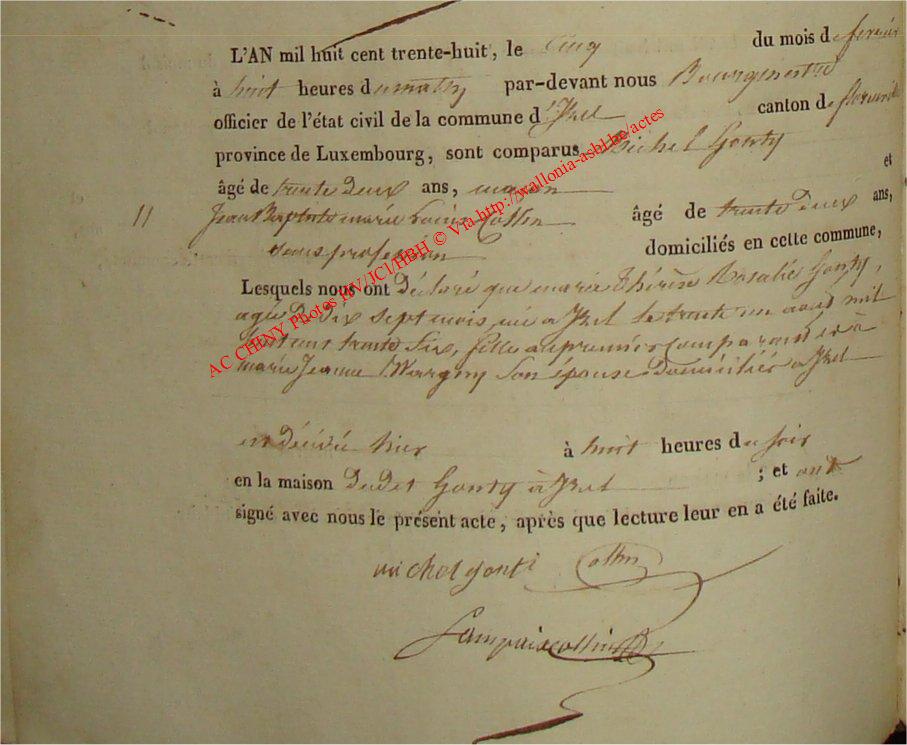 L'AN mil huit cent trente-huit, le cinq du mois de fevrier
à huit heures du matin par-devant nous Bourgmestre
officier de l'état civil de la commune d'Izel canton de florenville
province de Luxembourg, sont comparus Michel Gonty
âgé de trente deux ans, maçon et
11 Jean Baptiste marie Louis Collin âgé de trente deux ans,
sans profession domiciliés en cette commune,
Lesquels nous ont déclaré que marie thérèse Rosalie Gonty,
agée de dix sept mois, née a Izel le trente un aout mil
huit cent trente six, fille au premier comparant et à
marie Jeanne Wargny son épouse domiciliés a Izel
est décédée hier à huit heures du soir
en la maison dudit Gonty à Izel ; et ont
signé avec nous le présent acte, après que lecture leur en a été faite.
michel gonti Collin
AC CHINY Photos PIV/JCl/HBH © Via http://wallonia-asbl.be/actes